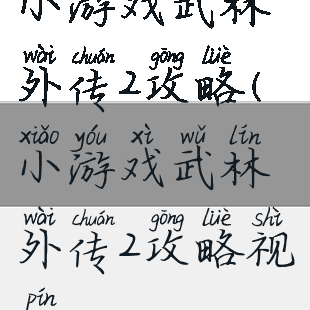 小游戏武林
wài chuán gōng lüè
外传2攻略(
xiǎo yóu xì wǔ lín
小游戏武林
wài chuán gōng lüè shì
外传2攻略视
pín